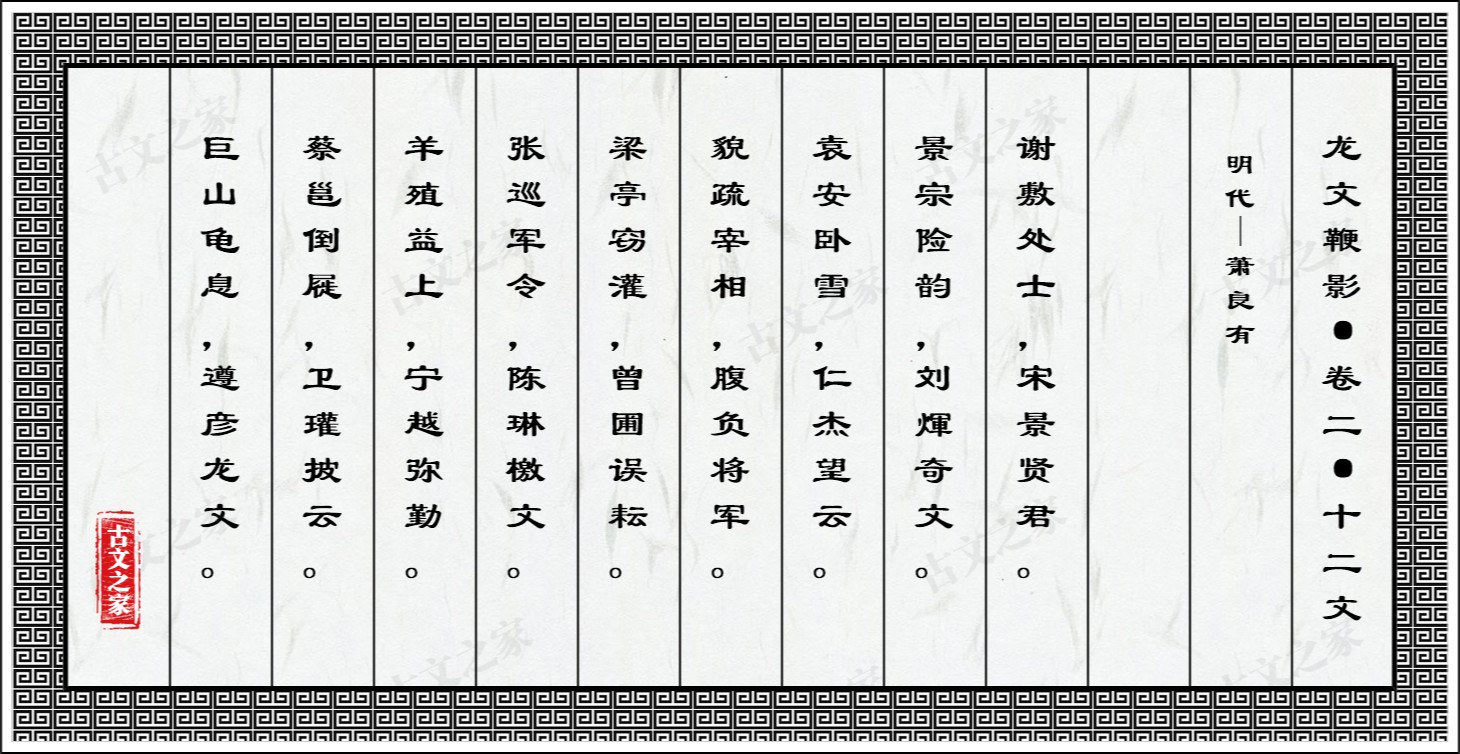 龙文鞭影●卷二●十二文
明代—萧良有
谢敷处士,宋景贤君。
景宗险韵,刘煇奇文。
袁安卧雪,仁杰望云。
貌疏宰相,腹负将军。
梁亭窃灌,曾圃误耘。
张巡军令,陈琳檄文。
羊殖益上,宁越弥勤。
蔡邕倒屣,卫瓘披云。
巨山龟息,遵彦龙文。
古文之家